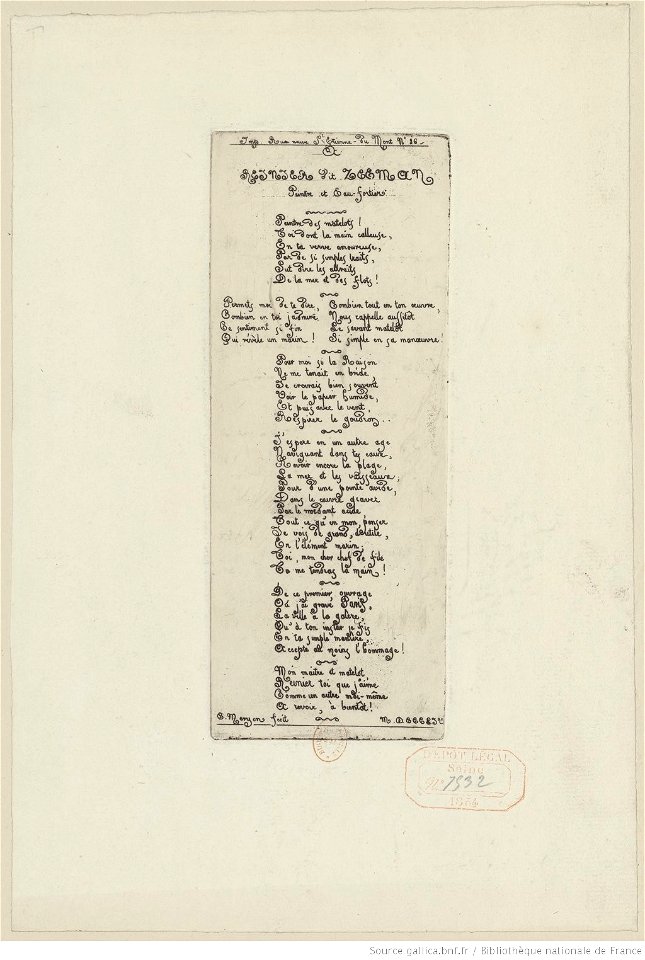 Imp. Rue neuve St Etienne-du Mont No 26
A
REINIER dit ZEEMAN
Peintre et Eau-fortier.
Peintre des matelots !
Toi dont la main calleuse,
En ta verve amoureuse,
Par de si simples traits,
Sut dire les attraits
De la mer et des flots !
Permets moi de te dire,
Combien en toi j'admire
Le sentiment si fin
Qui révèle un marin !
Combien tout en ton œuvre,
Nous rappelle aussitôt
Le savant matelot
Si simple en sa manœuvre.
Pour moi si la Raison
Ne me tenait en bride,
Je croirais bien souvent
Voir le papier humide,
Et puis avec le vent,
Respirer le goudron...
J'espere en un autre age
Naviguant dans tes eaux,
Revoir encore la plage,
La mer et les vaisseaux;
Pour d'une pointe avide,
Dans le cuivre graver
Par le mordant acide
Tout ce qu'en mon penser
Je vois de grand,
En l'élément marin;
Toi, mon cher chef de file
Tu me tendras la main !
De ce premier ouvrage
Où j'ai gravé Paris,
La ville à la galère,
Qu'à ton instar je fis
En ta simple manière,
Accepte au moins l'hommage !
Mon maitre et matelot
Reinier toi que j'aime
Comme un autre moi-même
A revoir, à bientôt !
C. Meryon fecit
DEPOT LEGAL
Seine
No 7532
1854
Source gallica.bnf.fr / Bibliothèque nationale de France